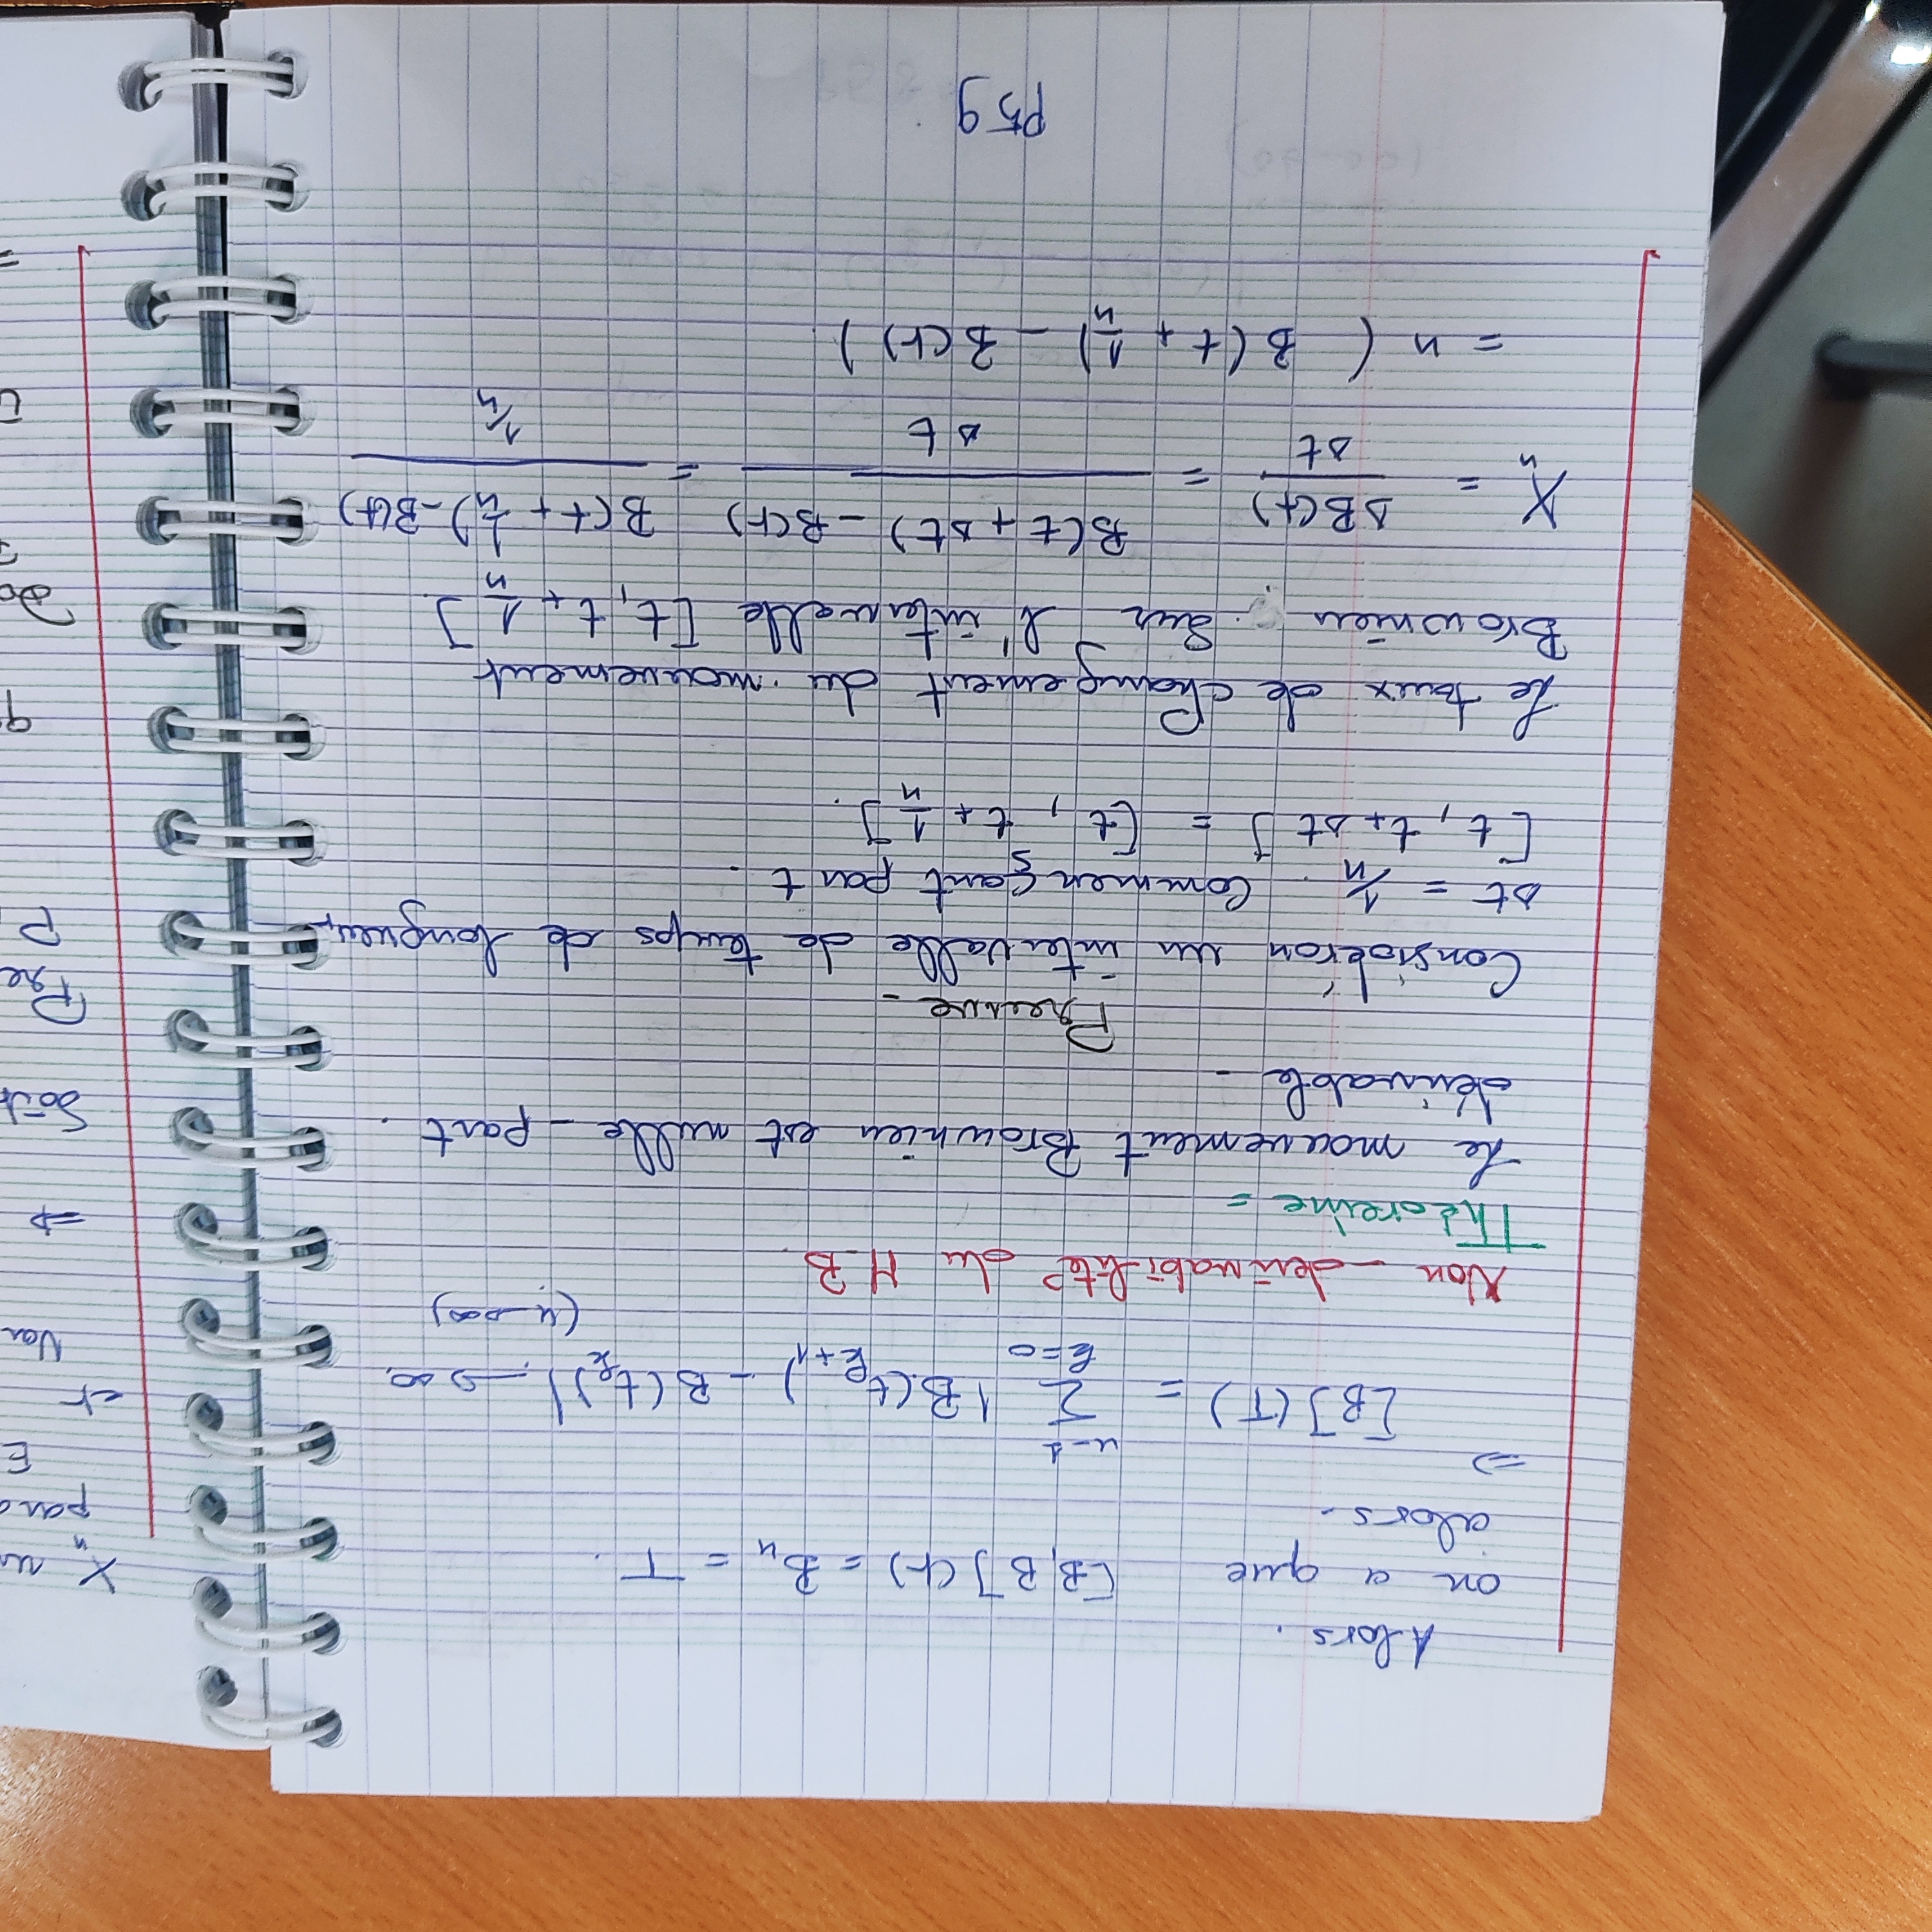 Alors.
on a que [B, B](t) = Bn = T.
alors.
⇒
[B](T) = n-1 Σ k=0 |B(t k+1) - B(t k)| → ∞.
(n → ∞)
Non-derivabilité du M.B.
Théoreme =
Le mouvement Brownien est nulle-part.
dérivable -
Preuve -
Considéron un intervalle de temps de longueur
Δt = 1/n. Commençant par t.
[t, t+Δt] = [t, t + 1/n].
Le taux de changement du mouvement
Brownien. Sur l'intervalle [t, t + 1/n].
Xn = ΔB(t)/Δt = (B(t + Δt) - B(t))/Δt = (B(t + 1/n) - B(t))/(1/n)
= n ( B(t + 1/n) - B(t) ).
P59
X n
et
⇒
Soit
Pre
P